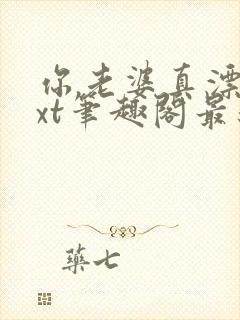 你老婆真漂
xt筆趣閣最
藥七